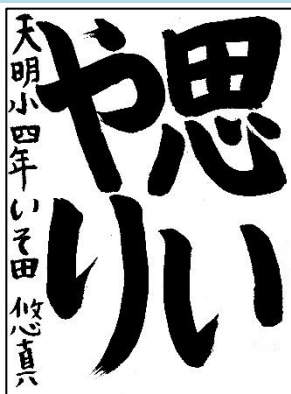 思い
やり
天明小四年 いそ田 悠真